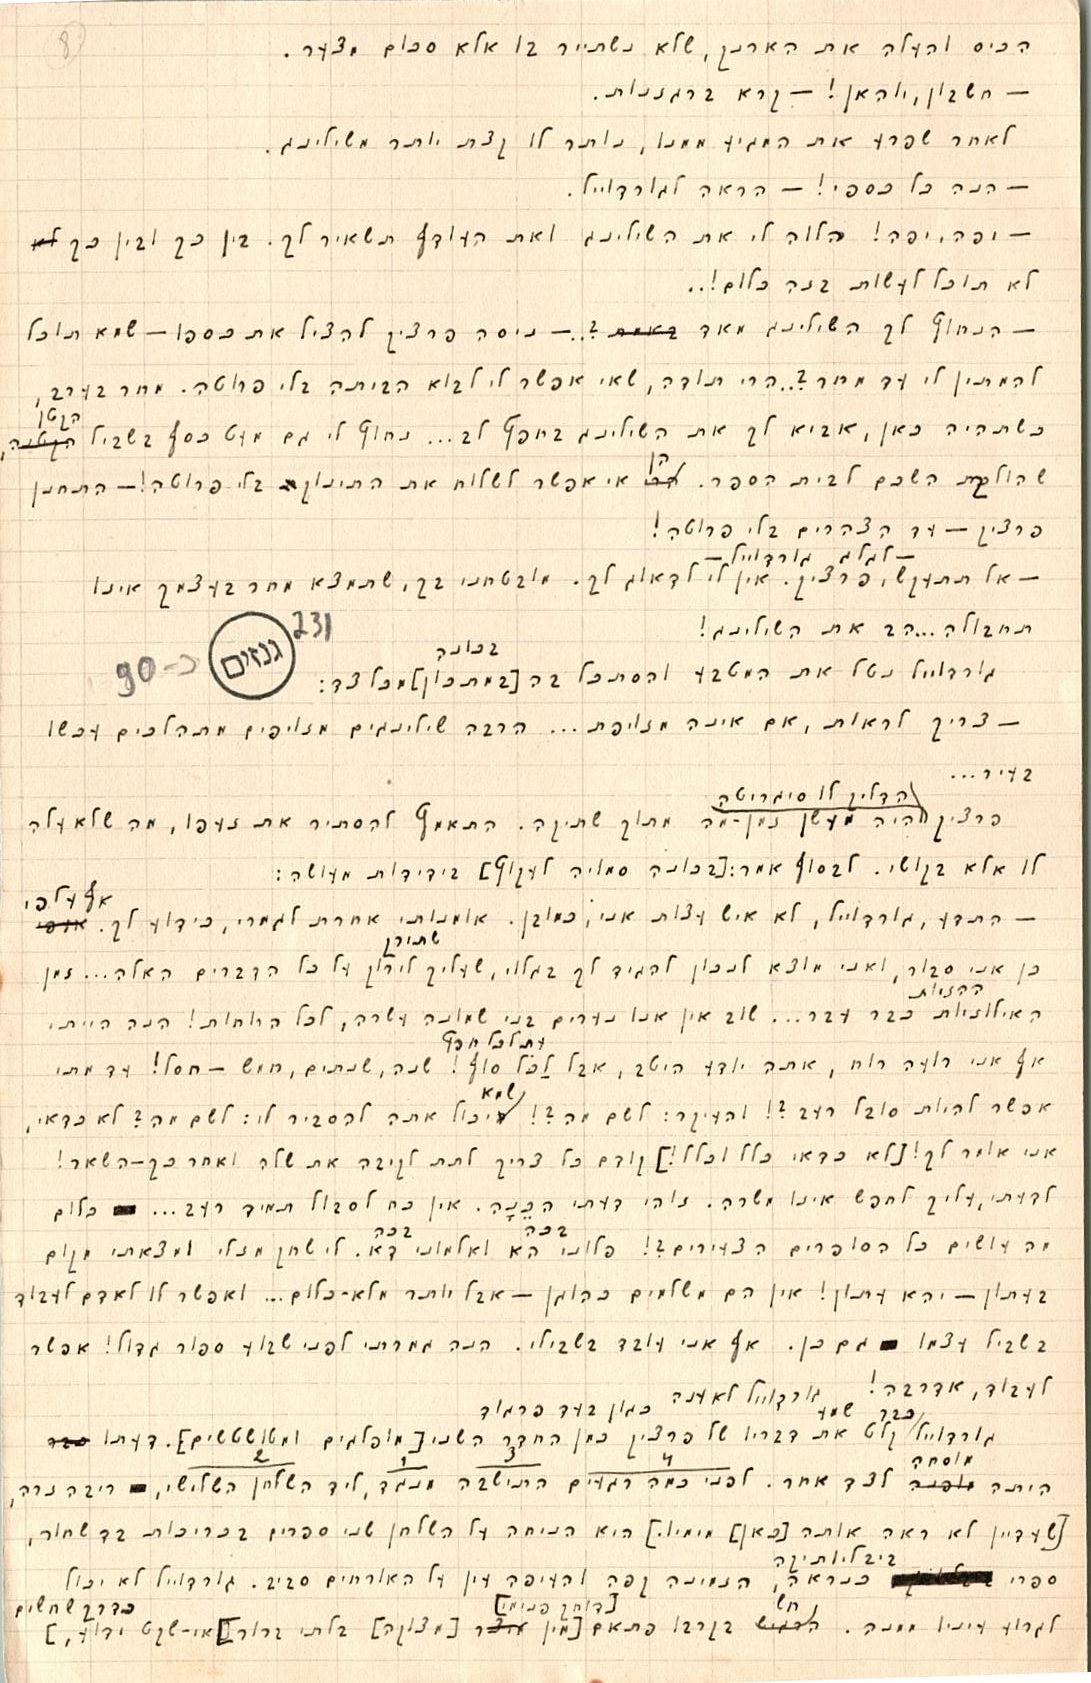 8
הכיס והעלה את הארנק, שלא נשתייר בו אלא סכום מצער.
— חשבון, יוהאן! — קרא ברגזנות.
לאחר שפרע את המגיע ממנו, נותר לו קצת יותר משילינג.
— הנה כל כספי! — הראה לגורדווייל.
— יפה, יפה! הלוה לי את השילינג ואת העודף תשאיר לך. בין כך ובין כך לא
לא תוכל לעשות בזה כלום!..
— הנחוץ לך השילינג מאד באמת?.. — ניסה פרצין להציל את כספו — שמא תוכל
להמתין לי עד מחר?.. הרי תודה, שאי אפשר לי לבוא הביתה בלי פרוטה. מחר בערב,
הקטן
כשתהיה כאן, אביא לך את השילינג בחפץ לב... נחוץ לי גם מעט כסף בשביל הקטנה,
הן
שהולכת השכם לבית הספר. אי אפשר לשלוח את התינוק בלי פרוטה! — התחנן
פרצין — עד הצהרים בלי פרוטה!
— לגלג גורדווייל —
— אל תתעקש, פרצין. אין לי לדאוג לך. מובטחני בך, שתמצא מחר בעצמך איזו
תחבולה... הב את השילינג!
231
גנזים
כ-90
בכונה
גורדווייל נטל את המטבע והסתכל בה [במתכוון] מכל צד:
— צריך לראות, אם אינה מזויפת... הרבה שילינגים מזויפים מתהלכים עכשו
בעיר...
הדליק לו סיגריטה
פרצין היה מעשן זמן-מה מתוך שתיקה. התאמץ להסתיר את זעפו, מה שלא עלה
לו אלא בקושי. לבסוף אמר: [בכונה סמויה לעקוץ] בידידות מעושה:
אף על פי
— התדע, גורדווייל, לא איש עצות אני, כמובן. אומנותי אחרת לגמרי, כידוע לך.
שתירק
כן אני סבור, ואני מוצא לנכון להגיד לך בגלוי, שעליך לירוק על כל הדברים האלה... זמן
ההזיות
האילוזיות כבר עבר... שוב אין אנו נערים בני שמונה עשרה, לכל הרוחות! הנה הייתי
עת לכל חפץ
אף אני רועה רוח, אתה יודע היטב, אבל לַכֹּל סוף! שנה, שנתים, חמש — חסל! עד מתי
שמא
אפשר להיות סובל רעב?! והעיקר: לשם מה?! יכול אתה להסביר לי: לשם מה? לא כדאי,
אני אומר לך! [לא כדאי כלל וכלל!] קודם כל צריך לתת לקיבה את שלה ואחר כך — השאר!
לדעתי, עליך לחפש איזו משרה. זוהי דעתי הכֵּנָה. אין כח לסבול תמיד רעב... כלום
בכה
בכה
מה עושים כל הסופרים הצעירים?! פלוני הא ואלמוני דא. לי שחק מזלי ומצאתי מקום
בעתון — יהא עתון! אין הם משלמים כהוגן — אבל יותר מלא-כלום... ואפשר לו לאדם לעבוד
בשביל עצמו גם כן. אף אני עובד בשבילי. הנה גמרתי לפני שבוע ספור גדול! אפשר
לעבוד, אדרבה!
גורדווייל לא ענה
כבר שמע
כמון בעד פרגוד
גורדווייל קלט את דבריו של פרצין כמן החדר השני [מופלגים ומטושטשים]. דעתו כבר
מוסחה
2 1 3 4
היתה מופנה לצד אחר. לפני כמה רגעים התישבה מנגד, ליד השלחן השלישי, ריבה זרה,
[שעדיין לא ראה אותה [כאן] מימיו.] היא הניחה על השלחן שני ספרים בכריכות בד שחור,
ביבליותיקה
ספרי כנראה, הזמינה קפה והעיפה עין על האורחים סביב. גורדווייל לא יכול
חש
[דוחק פנימי]
כדרך שחשים
לגרוע עיניו ממנה. הרגיש בקרבו פתאם [מין מוצר [מצוקה] בלתי ברור] [אי-שקט ידוע,]